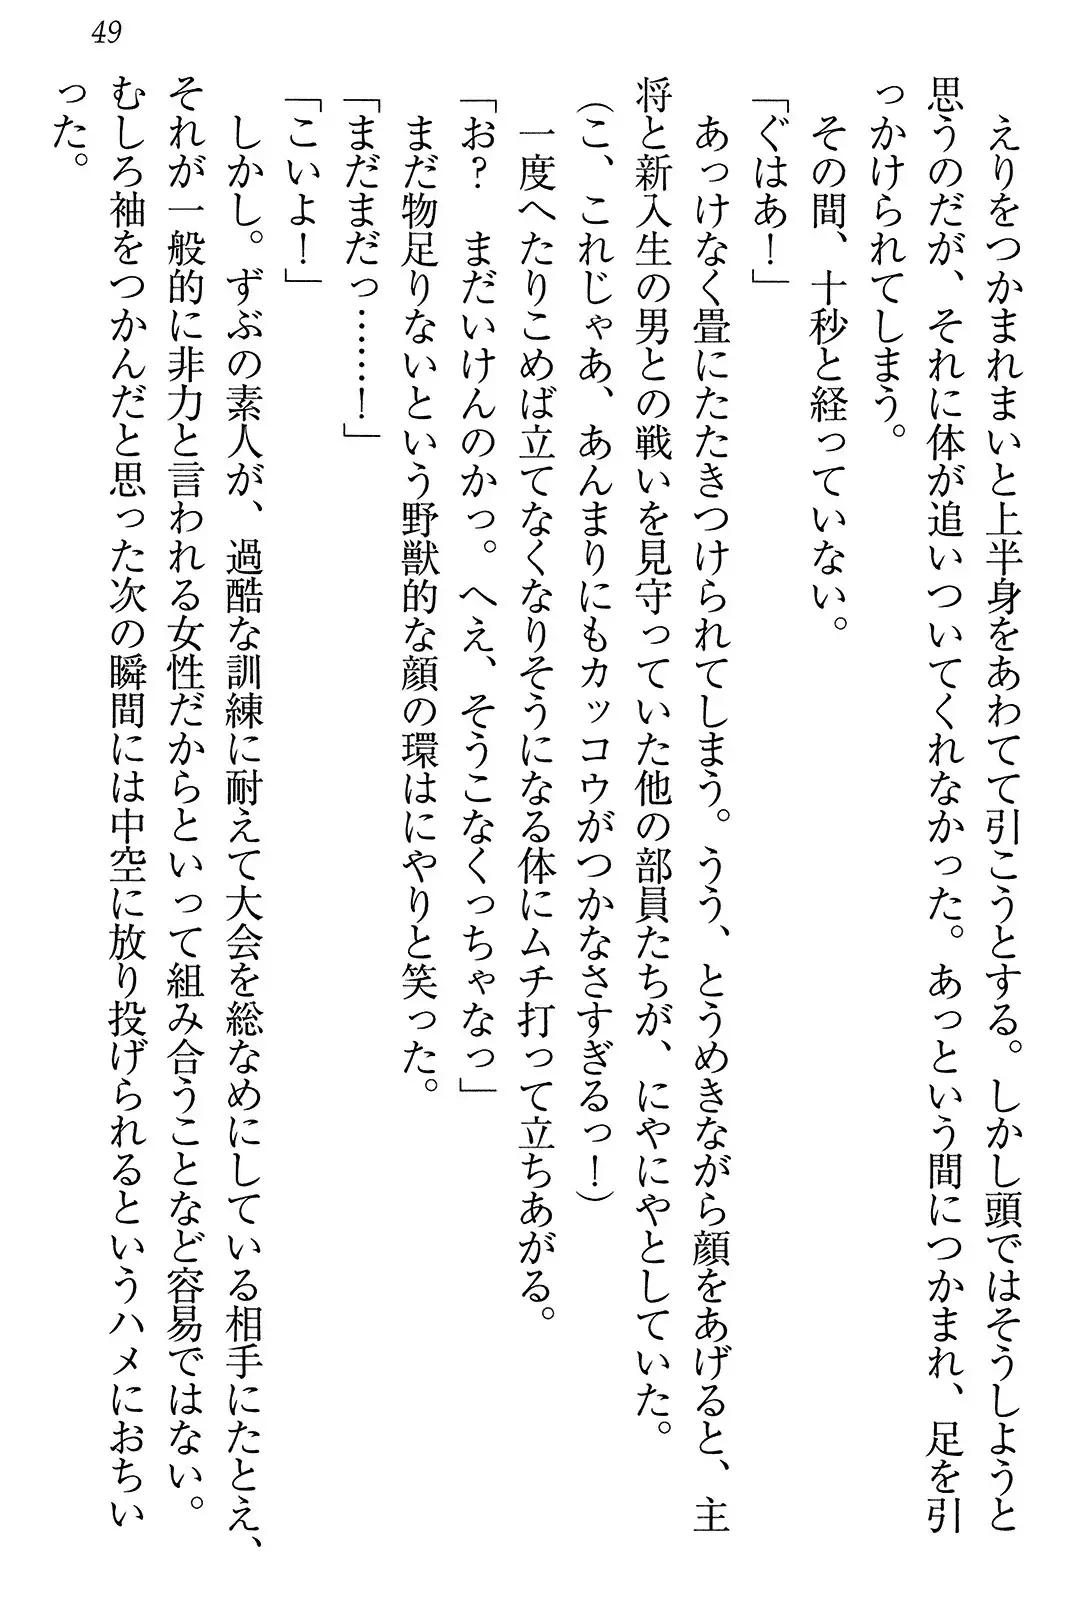 49
　えりをつかまれまいと上半身をあわてて引こうとする。しかし頭ではそうしようと
思うのだが、それに体が追いついてくれなかった。あっという間につかまれ、足を引
っかけられてしまう。
　その間、十秒と経っていない。
「ぐはあ！」
　あっけなく畳にたたきつけられてしまう。うう、とうめきながら顔をあげると、主
将と新入生の男との戦いを見守っていた他の部員たちが、にやにやとしていた。
（こ、これじゃあ、あんまりにもカッコウがつかなさすぎるっ！）
　一度へたりこめば立てなくなりそうになる体にムチ打って立ちあがる。
「お？　まだいけんのかっ。へえ、そうこなくっちゃなっ」
　まだ物足りないという野獣的な顔の環はにやりと笑った。
「まだまだっ……！」
「こいよ！」
　しかし。ずぶの素人が、過酷な訓練に耐えて大会を総なめにしている相手にたとえ、
それが一般的に非力と言われる女性だからといって組み合うことなど容易ではない。
むしろ袖をつかんだと思った次の瞬間には中空に放り投げられるというハメにおちい
った。